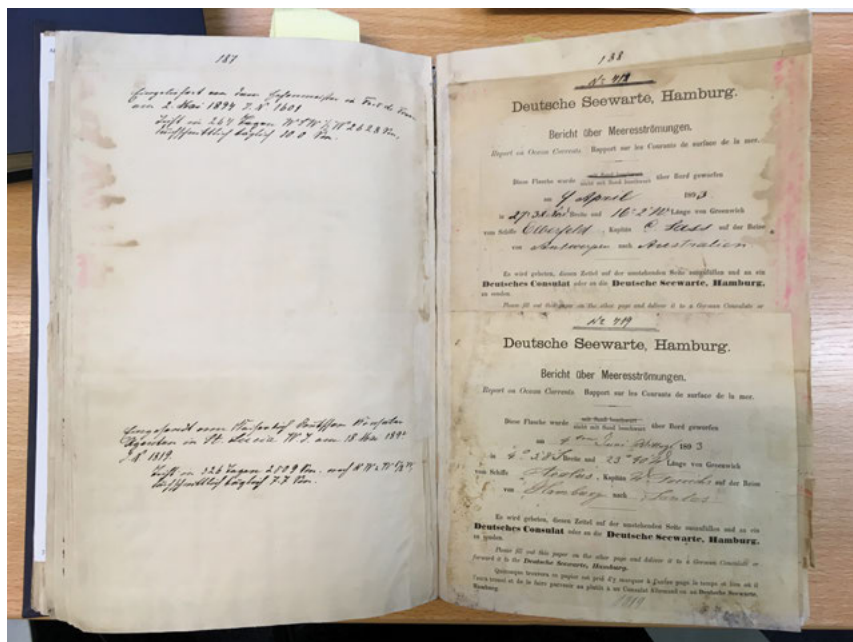 187
Eingeliefert von dem Hafenmeister in Fort de
am 2. Mai 1894 J. № 1609
Trift in 267 Tagen W 2628 Sm,
durchschnittlich täglich 10.0 Sm.
Eingesandt vom Kaiserlich Deutschen Konsular
Agenten in St. Lucia W. J. am 18 Mai 189
J. № 1819.
Trift in 326 Tagen 2509 Sm. nach
durchschnittlich täglich 7.7 Sm.
138
№ 718
Deutsche Seewarte, Hamburg.
Bericht über Meeresströmungen.
Report on Ocean Currents. Rapport sur les Courants de surface de la mer.
Diese Flasche wurde mit Sand beschwert
nicht mit Sand beschwert über Bord geworfen
am 9 April 1893
in Breite und Länge von Greenwich
vom Schiffe Elberfeld, Kapitän C. Sass auf der Reise
von Antwerpen nach Australien
Es wird gebeten, diesen Zettel auf der umstehenden Seite auszufüllen und an ein
Deutsches Consulat oder an die Deutsche Seewarte, Hamburg,
zu senden.
Please fill out this paper on the other page and deliver it to a German Consulate or
№ 719
Deutsche Seewarte, Hamburg.
Bericht über Meeresströmungen.
Report on Ocean Currents. Rapport sur les Courants de surface de la mer.
Diese Flasche wurde mit Sand beschwert
nicht mit Sand beschwert über Bord geworfen
am 1893
in Breite und Länge von Greenwich
vom Schiffe, Kapitän auf der Reise
von Hamburg nach Santos
Es wird gebeten, diesen Zettel auf der umstehenden Seite auszufüllen und an ein
Deutsches Consulat oder an die Deutsche Seewarte, Hamburg,
zu senden.
Please fill out this paper on the other page and deliver it to a German Consulate or
forward it to the Deutsche Seewarte, Hamburg.
Quiconque trouvera ce papier est prié d'y marquer à l'autre page le temps et lieu où il
l'aura trouvé et de le faire parvenir au plutôt à un Consulat Allemand ou au Deutsche Seewarte,
Hamburg.
1819